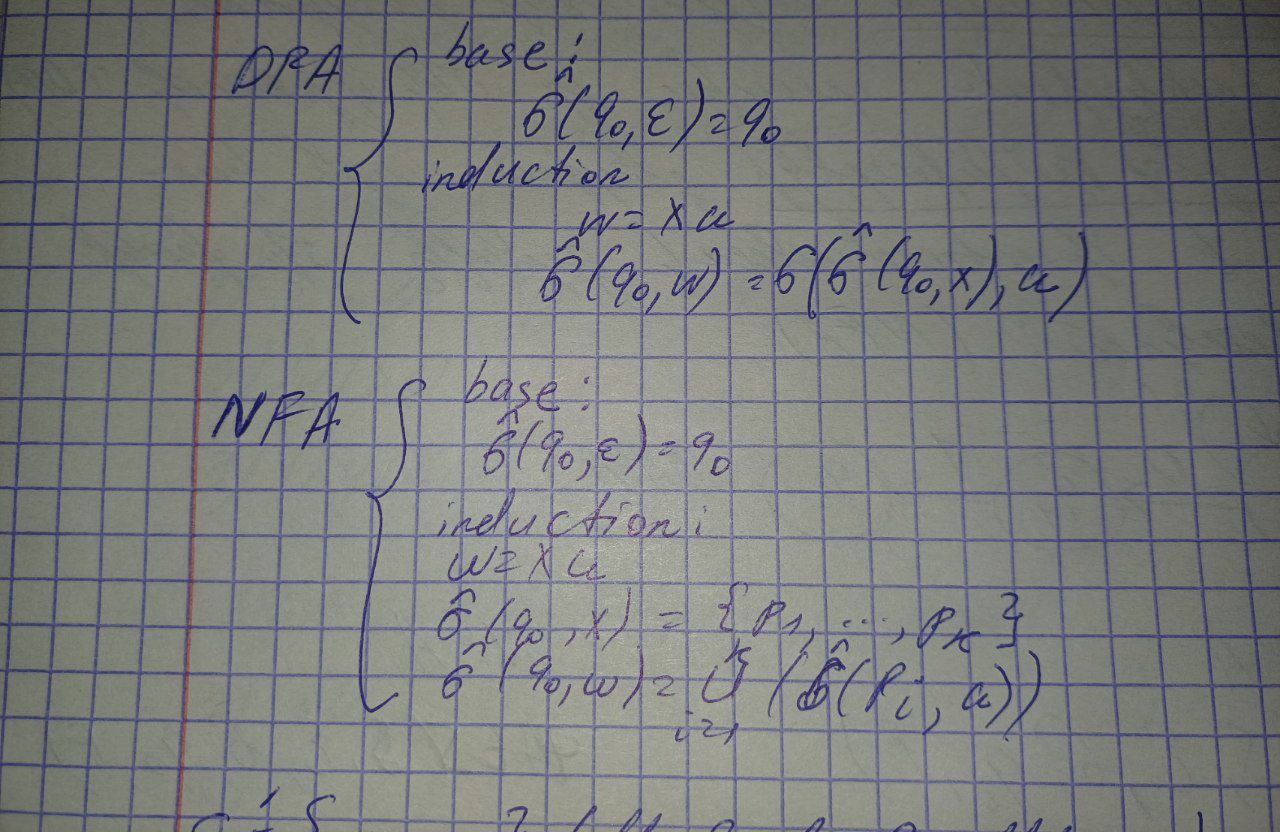 DFA { base:
σ̂(q₀, ε) = q₀
induction
w = xa
σ̂(q₀, w) = σ(σ̂(q₀, x), a)
NFA { base:
σ̂(q₀, ε) = q₀
induction:
w = xa
σ̂(q₀, x) = {p₁, ..., pₖ}
σ̂(q₀, w) = ∪ᵢ₌₁ᵏ (σ̂(pᵢ, a))